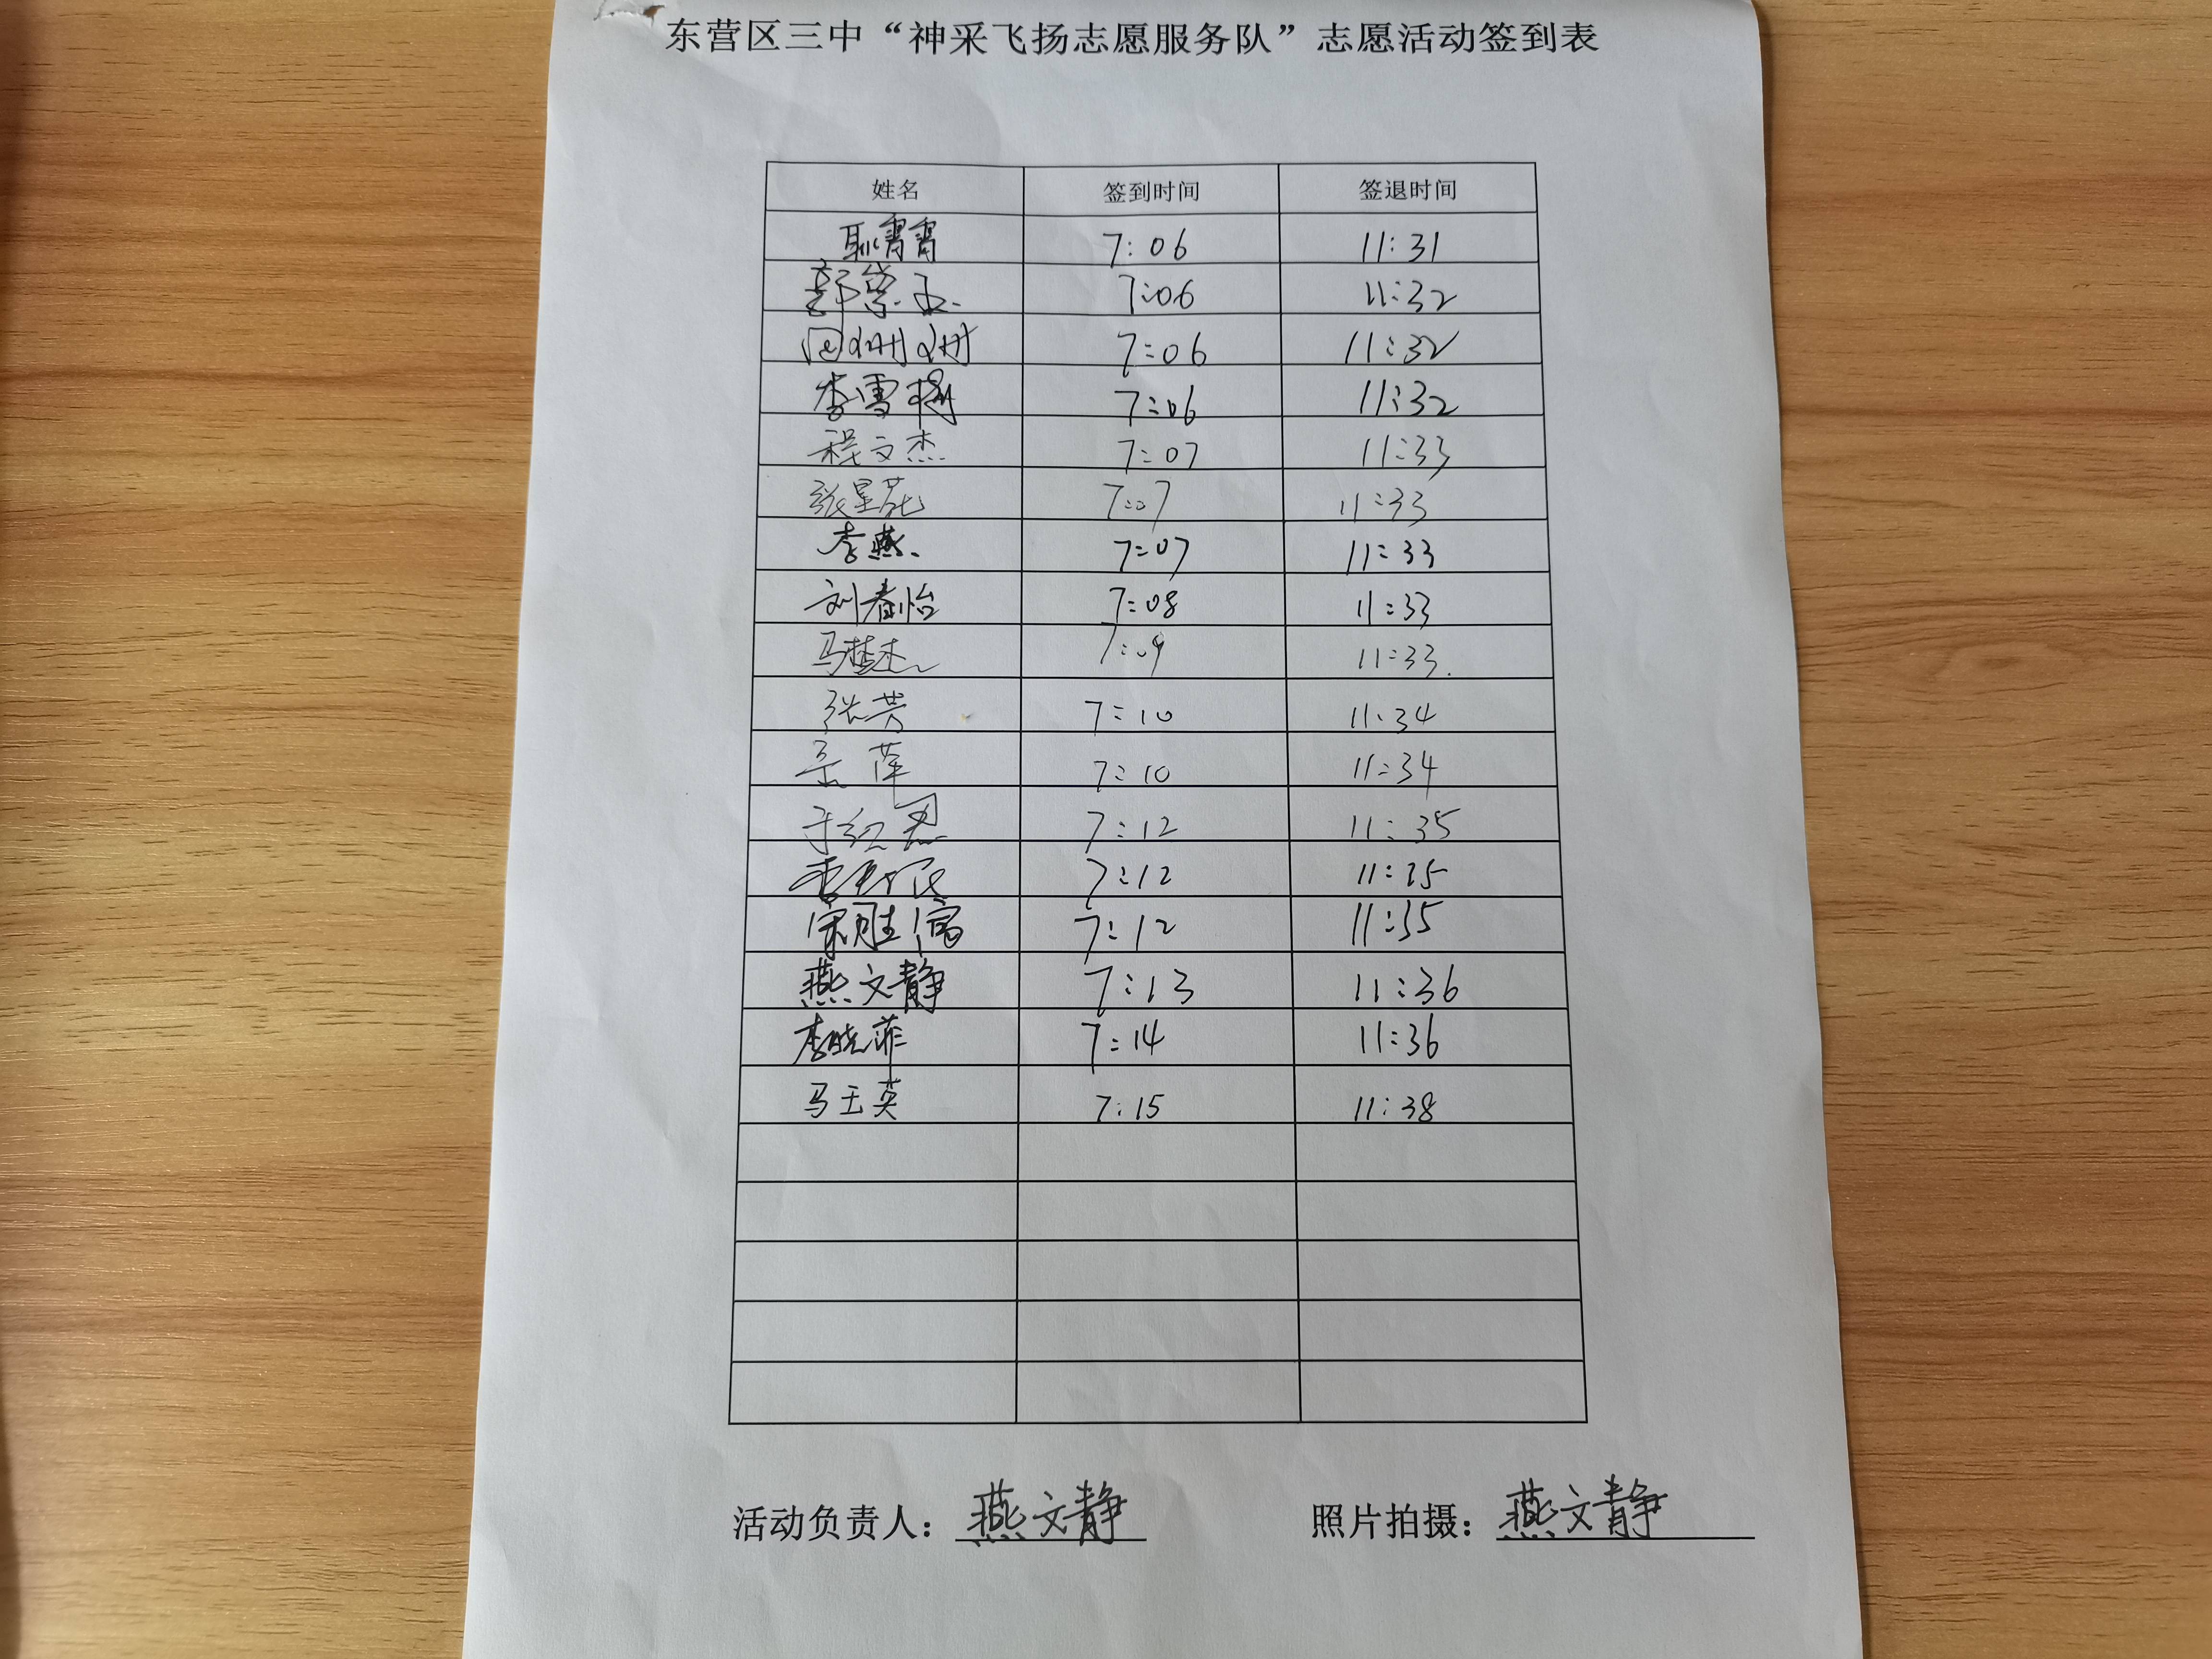 东营区三中“神采飞扬志愿服务队”志愿活动签到表
姓名 签到时间 签退时间
耿雷雷 7:06 11:31
7:06 11:32
7:06 11:32
李雪梅 7:06 11:32
程文杰 7:07 11:33
张星苑 7:07 11:33
李燕 7:07 11:33
刘春怡 7:08 11:33
马梦杰 7:09 11:33
张芳 7:10 11:34
萍 7:10 11:34
于红 7:12 11:35
7:12 11:35
宋胜 7:12 11:35
燕文静 7:13 11:36
李晓菲 7:14 11:36
马玉英 7:15 11:38
活动负责人：燕文静 照片拍摄：燕文静